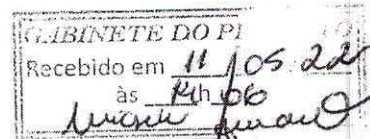 GABINETE DO P
Recebido em 11/05 22
às 14h06